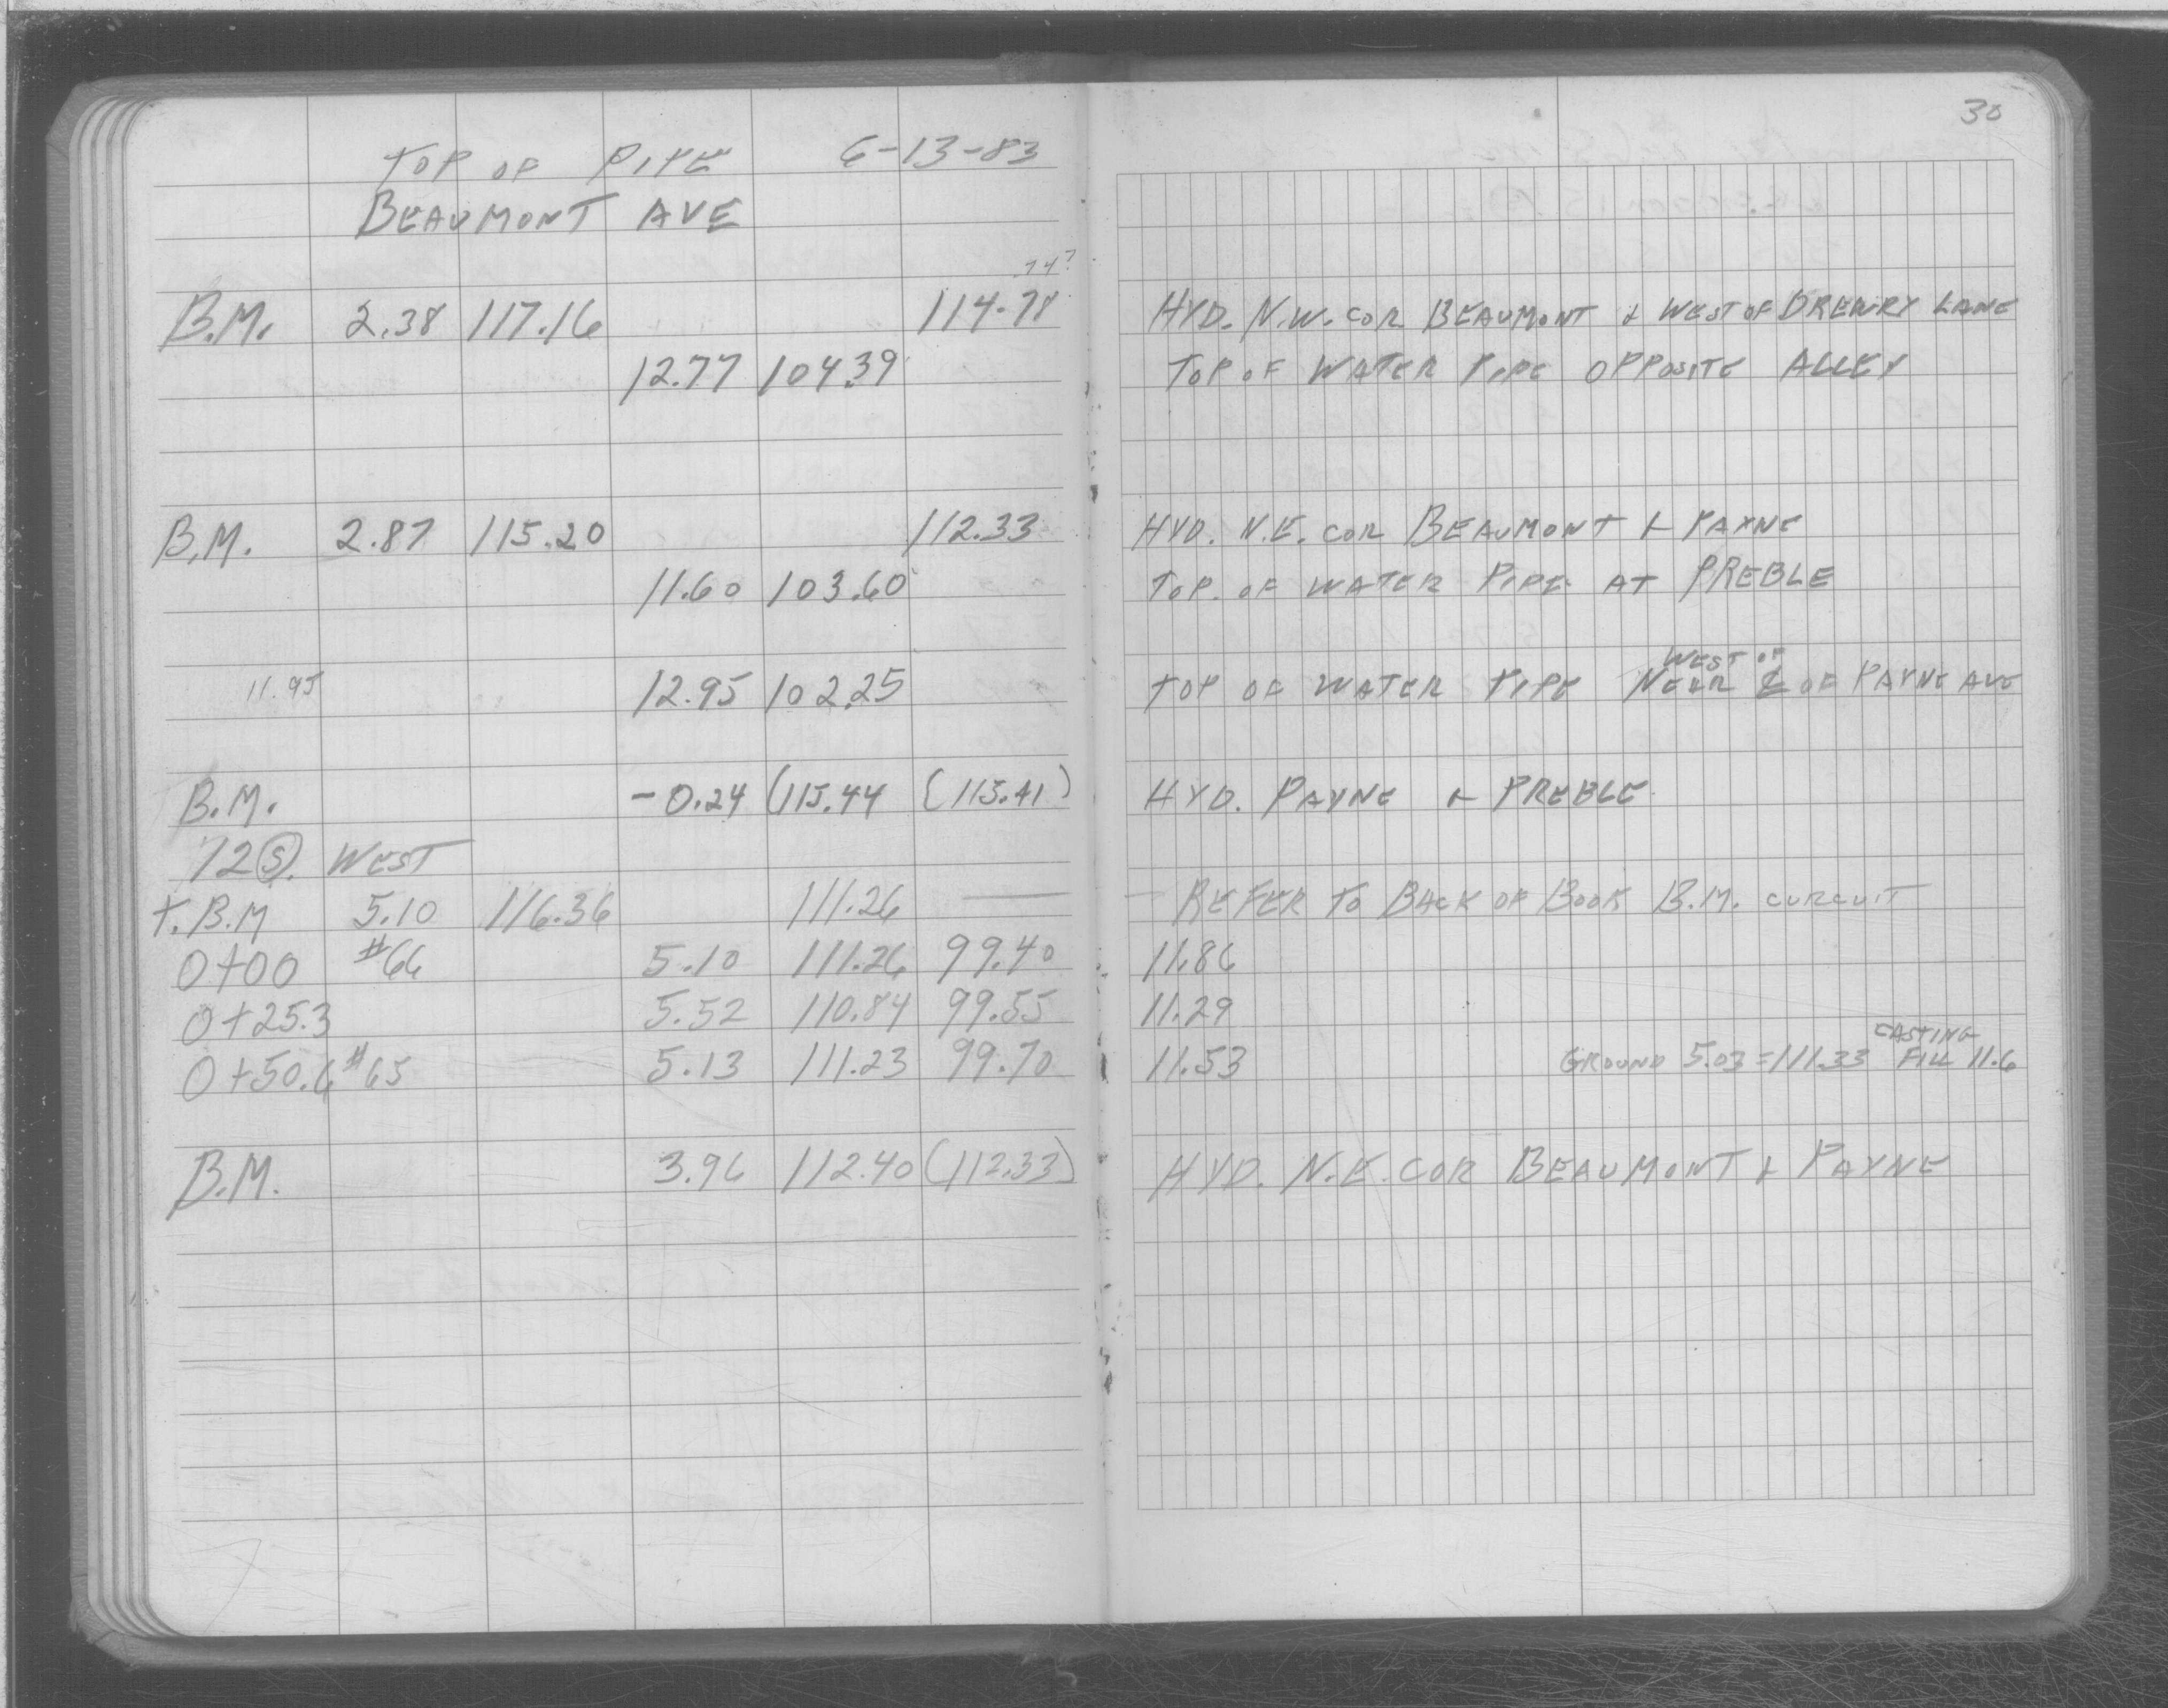 30
TOP OF PIPE 6-13-83
BEAUMONT AVE
.74?
B.M. 2.38 117.16 114.78 HYD. N.W. COR BEAUMONT & WEST OF DREWRY LANE
12.77 104.39 TOP OF WATER PIPE OPPOSITE ALLEY
B.M. 2.87 115.20 112.33 HYD. N.E. COR BEAUMONT & PAYNE
11.60 103.60 TOP. OF WATER PIPE AT PREBLE
WEST OF
11.95 12.95 102.25 TOP OF WATER PIPE NEAR ℄ OF PAYNE AVE
B.M. -0.24 (115.44 (115.41) HYD. PAYNE & PREBLE
72 (S). WEST
T.B.M 5.10 116.36 111.26 — REFER TO BACK OF BOOK B.M. CURCUIT
0+00 #66 5.10 111.26 99.40 11.86
0+25.3 5.52 110.84 99.55 11.29
CASTING
0+50.6 #65 5.13 111.23 99.70 11.53 GROUND 5.03=111.33 FILL 11.6
B.M. 3.96 112.40 (112.33) HYD. N.E. COR BEAUMONT & PAYNE